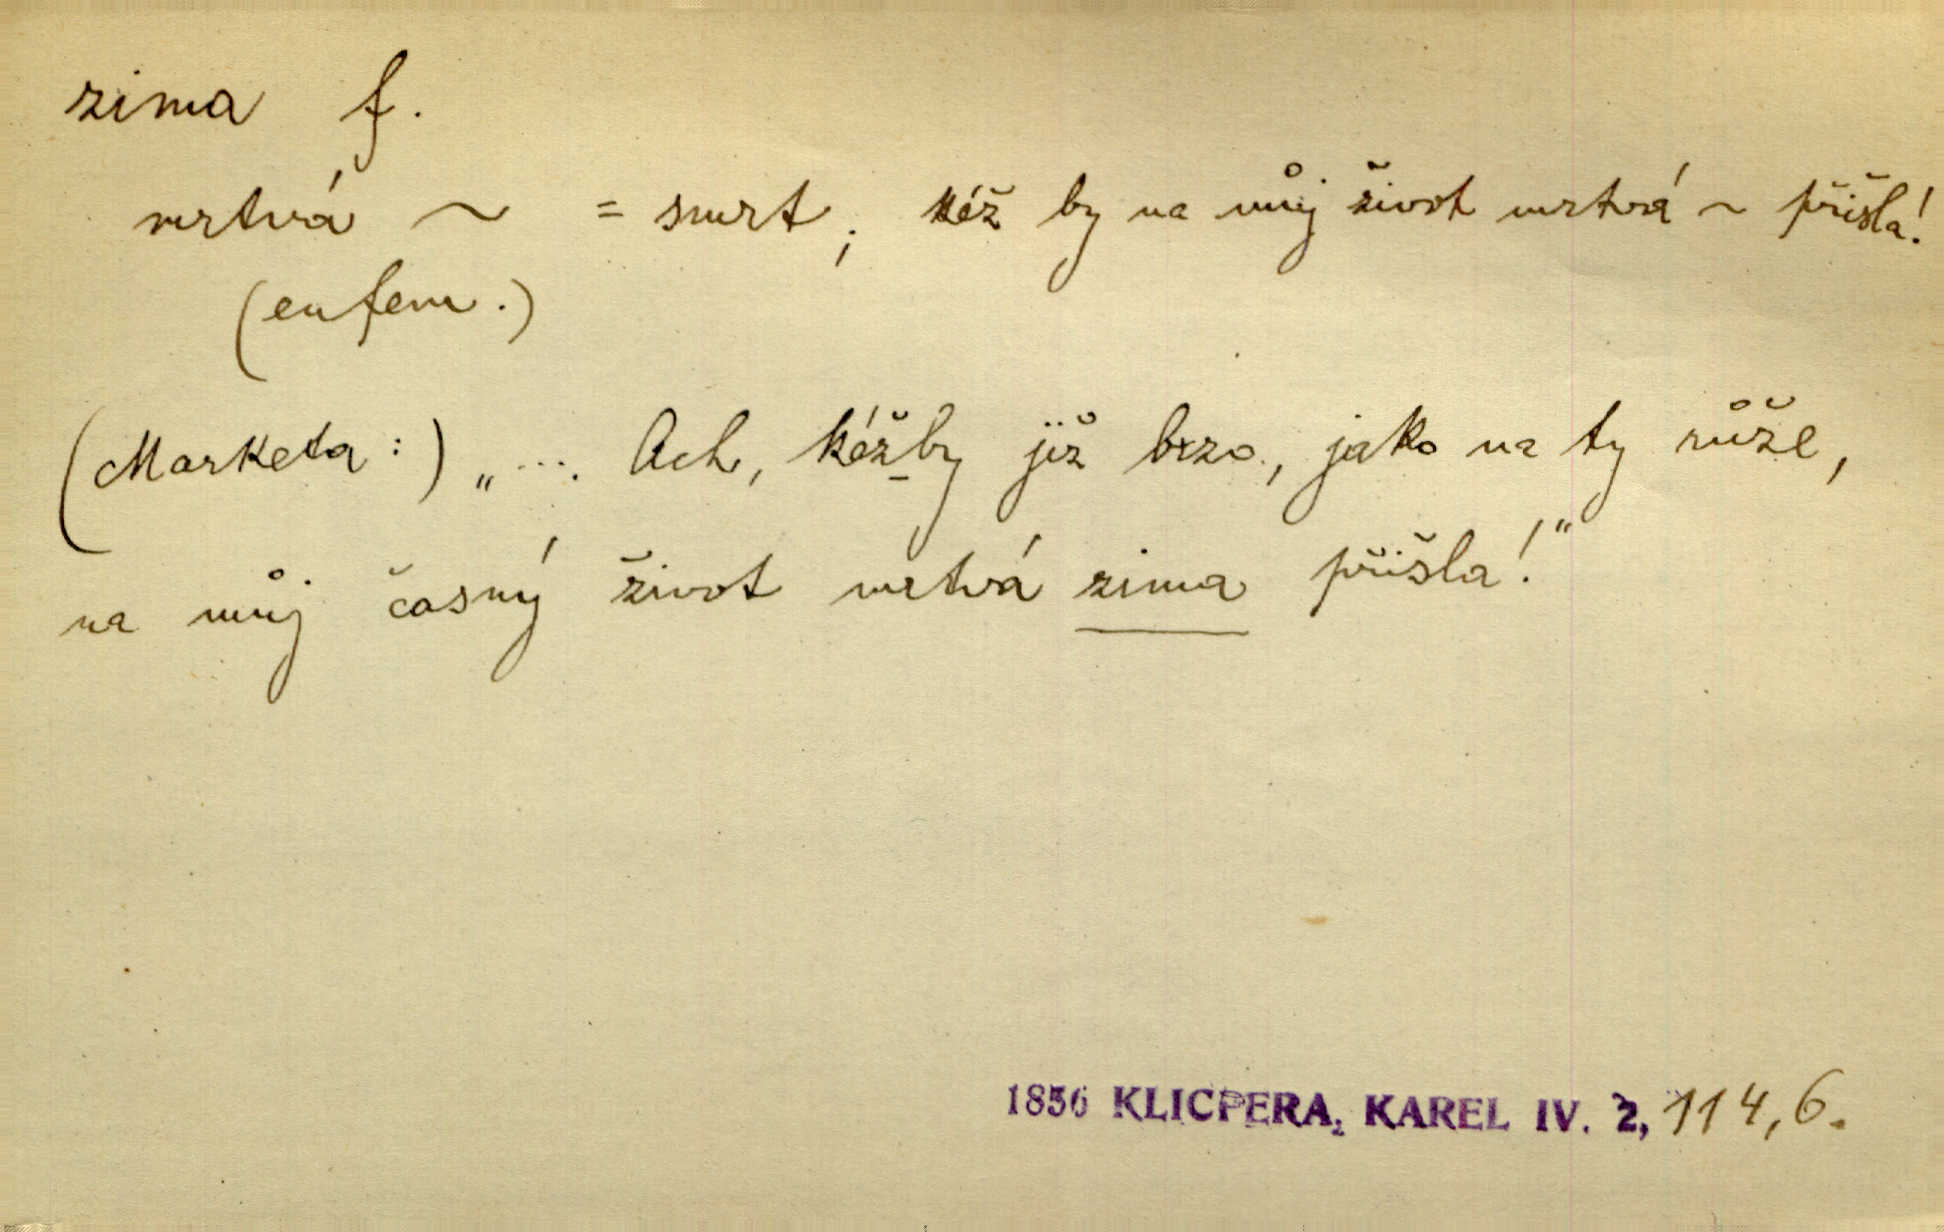 zima f.
mrtvá ~ = smrt; kéž by na můj život mrtvá ~ přišla!
(eufem.)
(Marketa:) „.... Ach, kéžby již brzo, jako na ty růže,
na můj časný život mrtvá zima přišla!“
1856 KLICPERA, KAREL IV. 2, 114, 6.